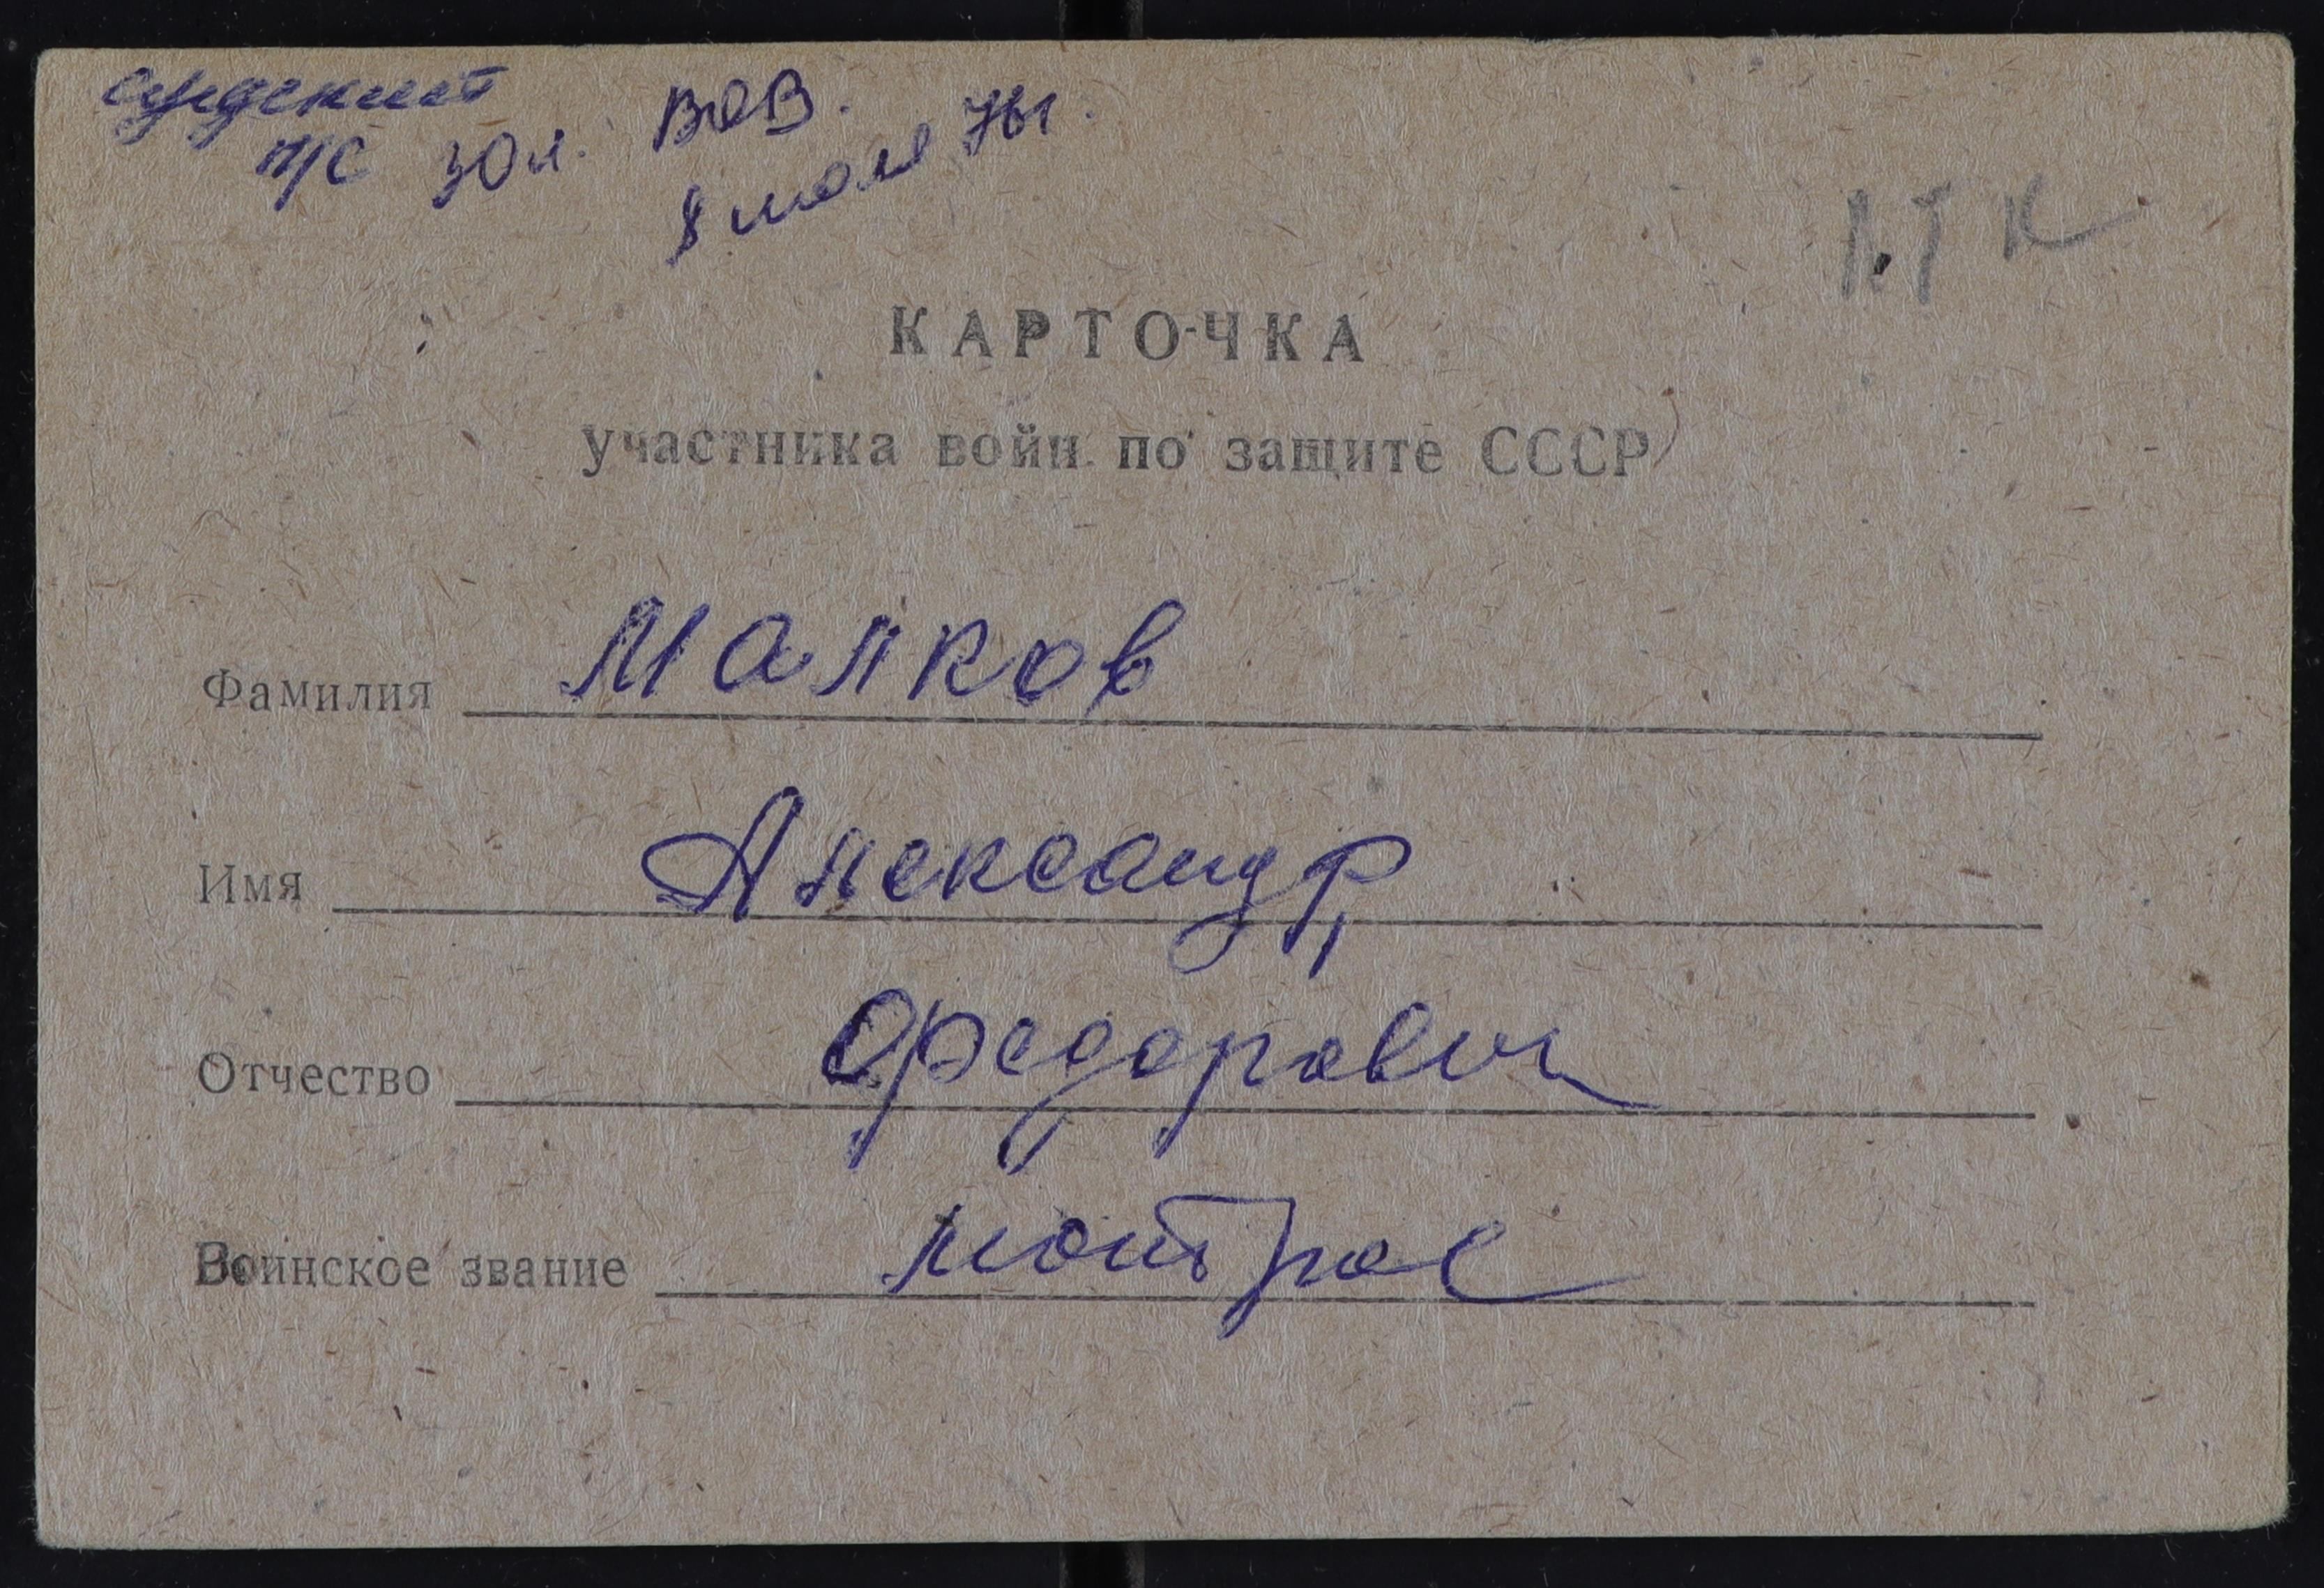 Сундский ВОВ.
п/с 30 л. 8 июля 76г.
КАРТОЧКА
участника войн по защите СССР
Фамилия Малков
Имя Александр
Отчество Федорович
Воинское звание матрос